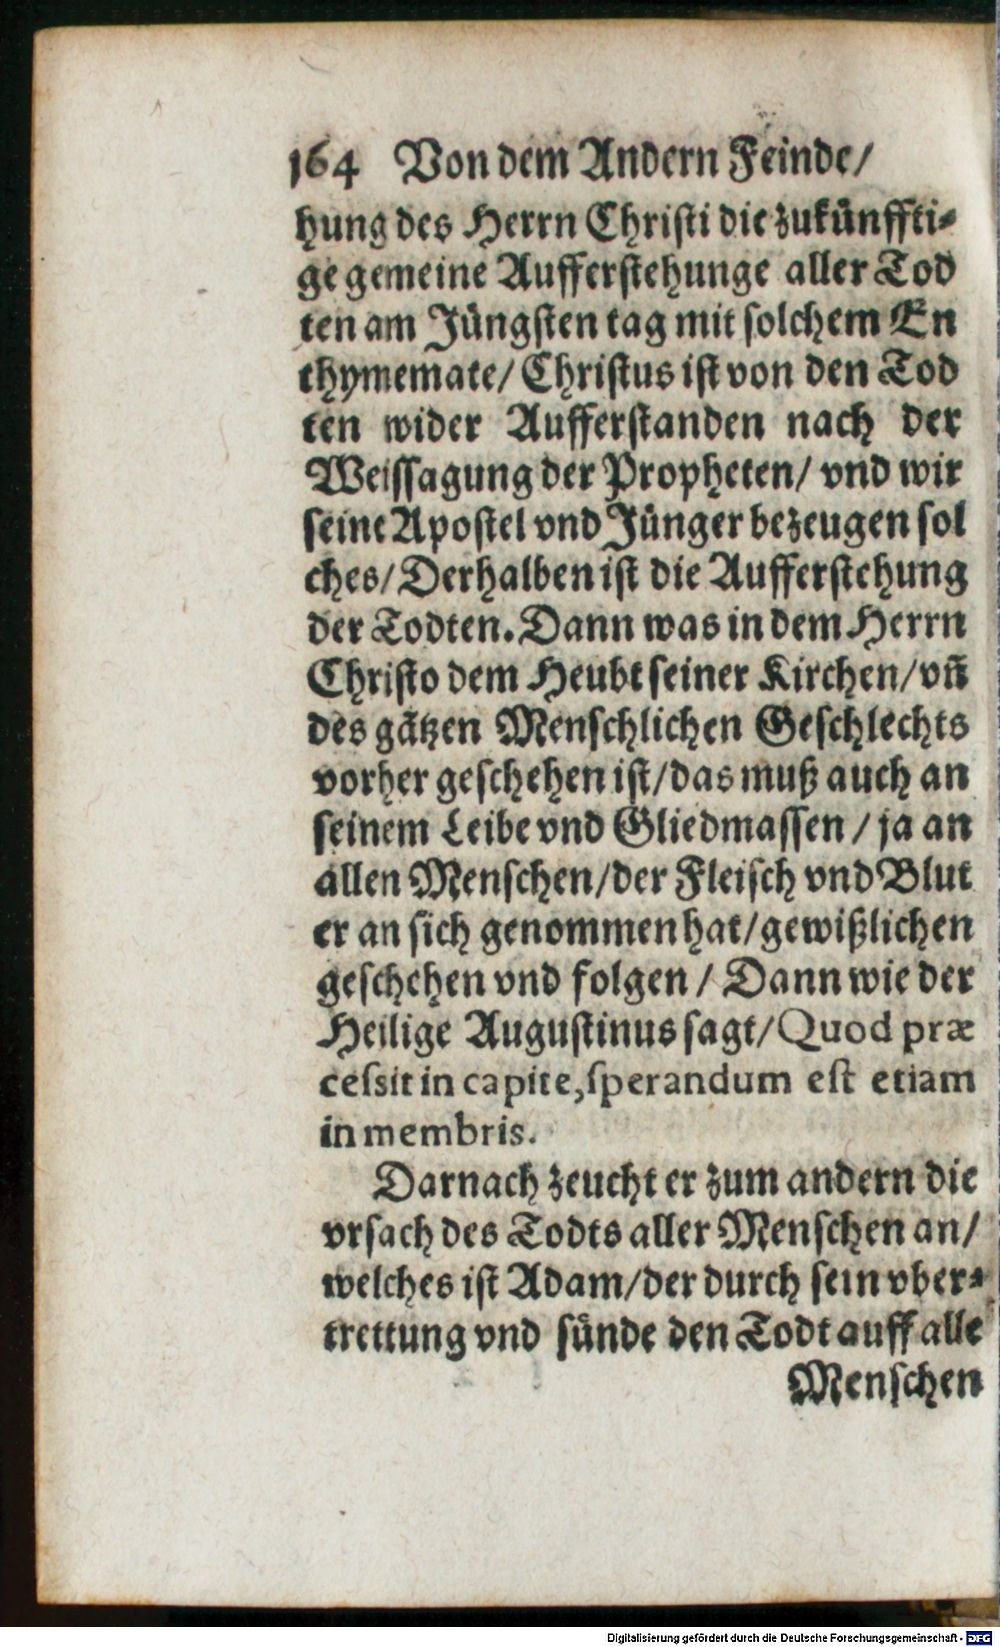 164 Von dem Andern Feinde/
hung des Herrn Christi die zukünffti⸗
ge gemeine Aufferstehunge aller Tod
ten am Jüngsten tag mit solchem En
thymemate/ Christus ist von den Tod
ten wider Aufferstanden nach der
Weissagung der Propheten/ vnd wir
seine Apostel vnd Jünger bezeugen sol
ches/ Derhalben ist die Aufferstehung
der Todten. Dann was in dem Herrn
Christo dem Heubt seiner Kirchen/ vn̄
des gātzen Menschlichen Geschlechts
vorher geschehen ist/ das muß auch an
seinem Leibe vnd Gliedmassen / ja an
allen Menschen/ der Fleisch vnd Blut
er an sich genommen hat/ gewißlichen
geschehen vnd folgen / Dann wie der
Heilige Augustinus sagt/ Quod præ
cessit in capite, sperandum est etiam
in membris.
Darnach zeucht er zum andern die
vrsach des Todts aller Menschen an/
welches ist Adam/ der durch sein vber⸗
trettung vnd sünde den Todt auff alle
Menschen
Digitalisierung gefördert durch die Deutsche Forschungsgemeinschaft - DFG